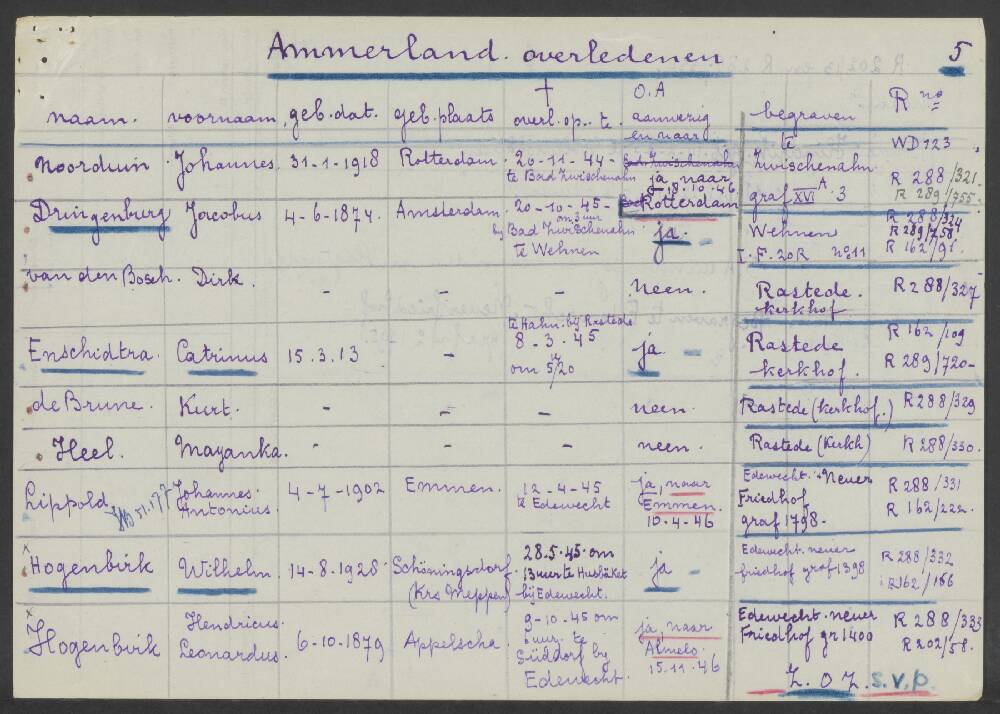 Ammerland. overledenen 5
naam. voornaam. geb. dat. geb. plaats † overl. op. te. O.A aanwezig en naar begraven te R no
Noorduin Johannes. 31-1-1918 Rotterdam. 20-11-44- te Bad Zwischenahn ja, naar 18.10.46 Rotterdam Zwischenahn graf XVI A. 3 WD123 R 288/321. R 289/755.
Dringenburg Jacobus 4-6-1874. Amsterdam. 20-10-45- om 3 uur bij Bad Zwischenahn te Wehnen ja. - Wehnen I.F. 20R no 11 R 288/324 R 289/758 R 162/91.
van den Bosch. Dirk. - - neen. Rastede. kerkhof R 288/327
Enschidtra. Catrinus 15.3.13 - te Hahn. bij Rastede 8-3-45 om 5/20 ja - Rastede kerkhof. R 162/109 R 289/720-
de Brune. Kurt. - - - neen. Rastede (kerkhof.) R288/329
Heel. Mayanka. - - - neen. Rastede (Kerkh) R 288/330.
Lippold Johannes. Antonius. 4-7-1902 Emmen. 12-4-45 te Edewecht ja, naar Emmen. 10.4-46 Edewecht. Neuer Friedhof graf 1798- R 288/331 R 162/222.
x Hogenbirk Wilhelm. 14-8-1928 Schöningsdorf- (Krs Meppen) 28.5.45 om 13 uur te Husbäke bij Edewecht. ja - Edewecht. neuer friedhof graf 1398 R 288/332 R162/166
x Hogenbirk Hendricus. Leonardus. 6-10-1879 Appelscha. 9-10-45 om uur, te Süddorf bij Edewecht. ja, naar Almelo. 15.11.46 Edewecht. neuer Friedhof gr 1400 R 288/333 R 202/58.
Z.O.Z. s.v.p.